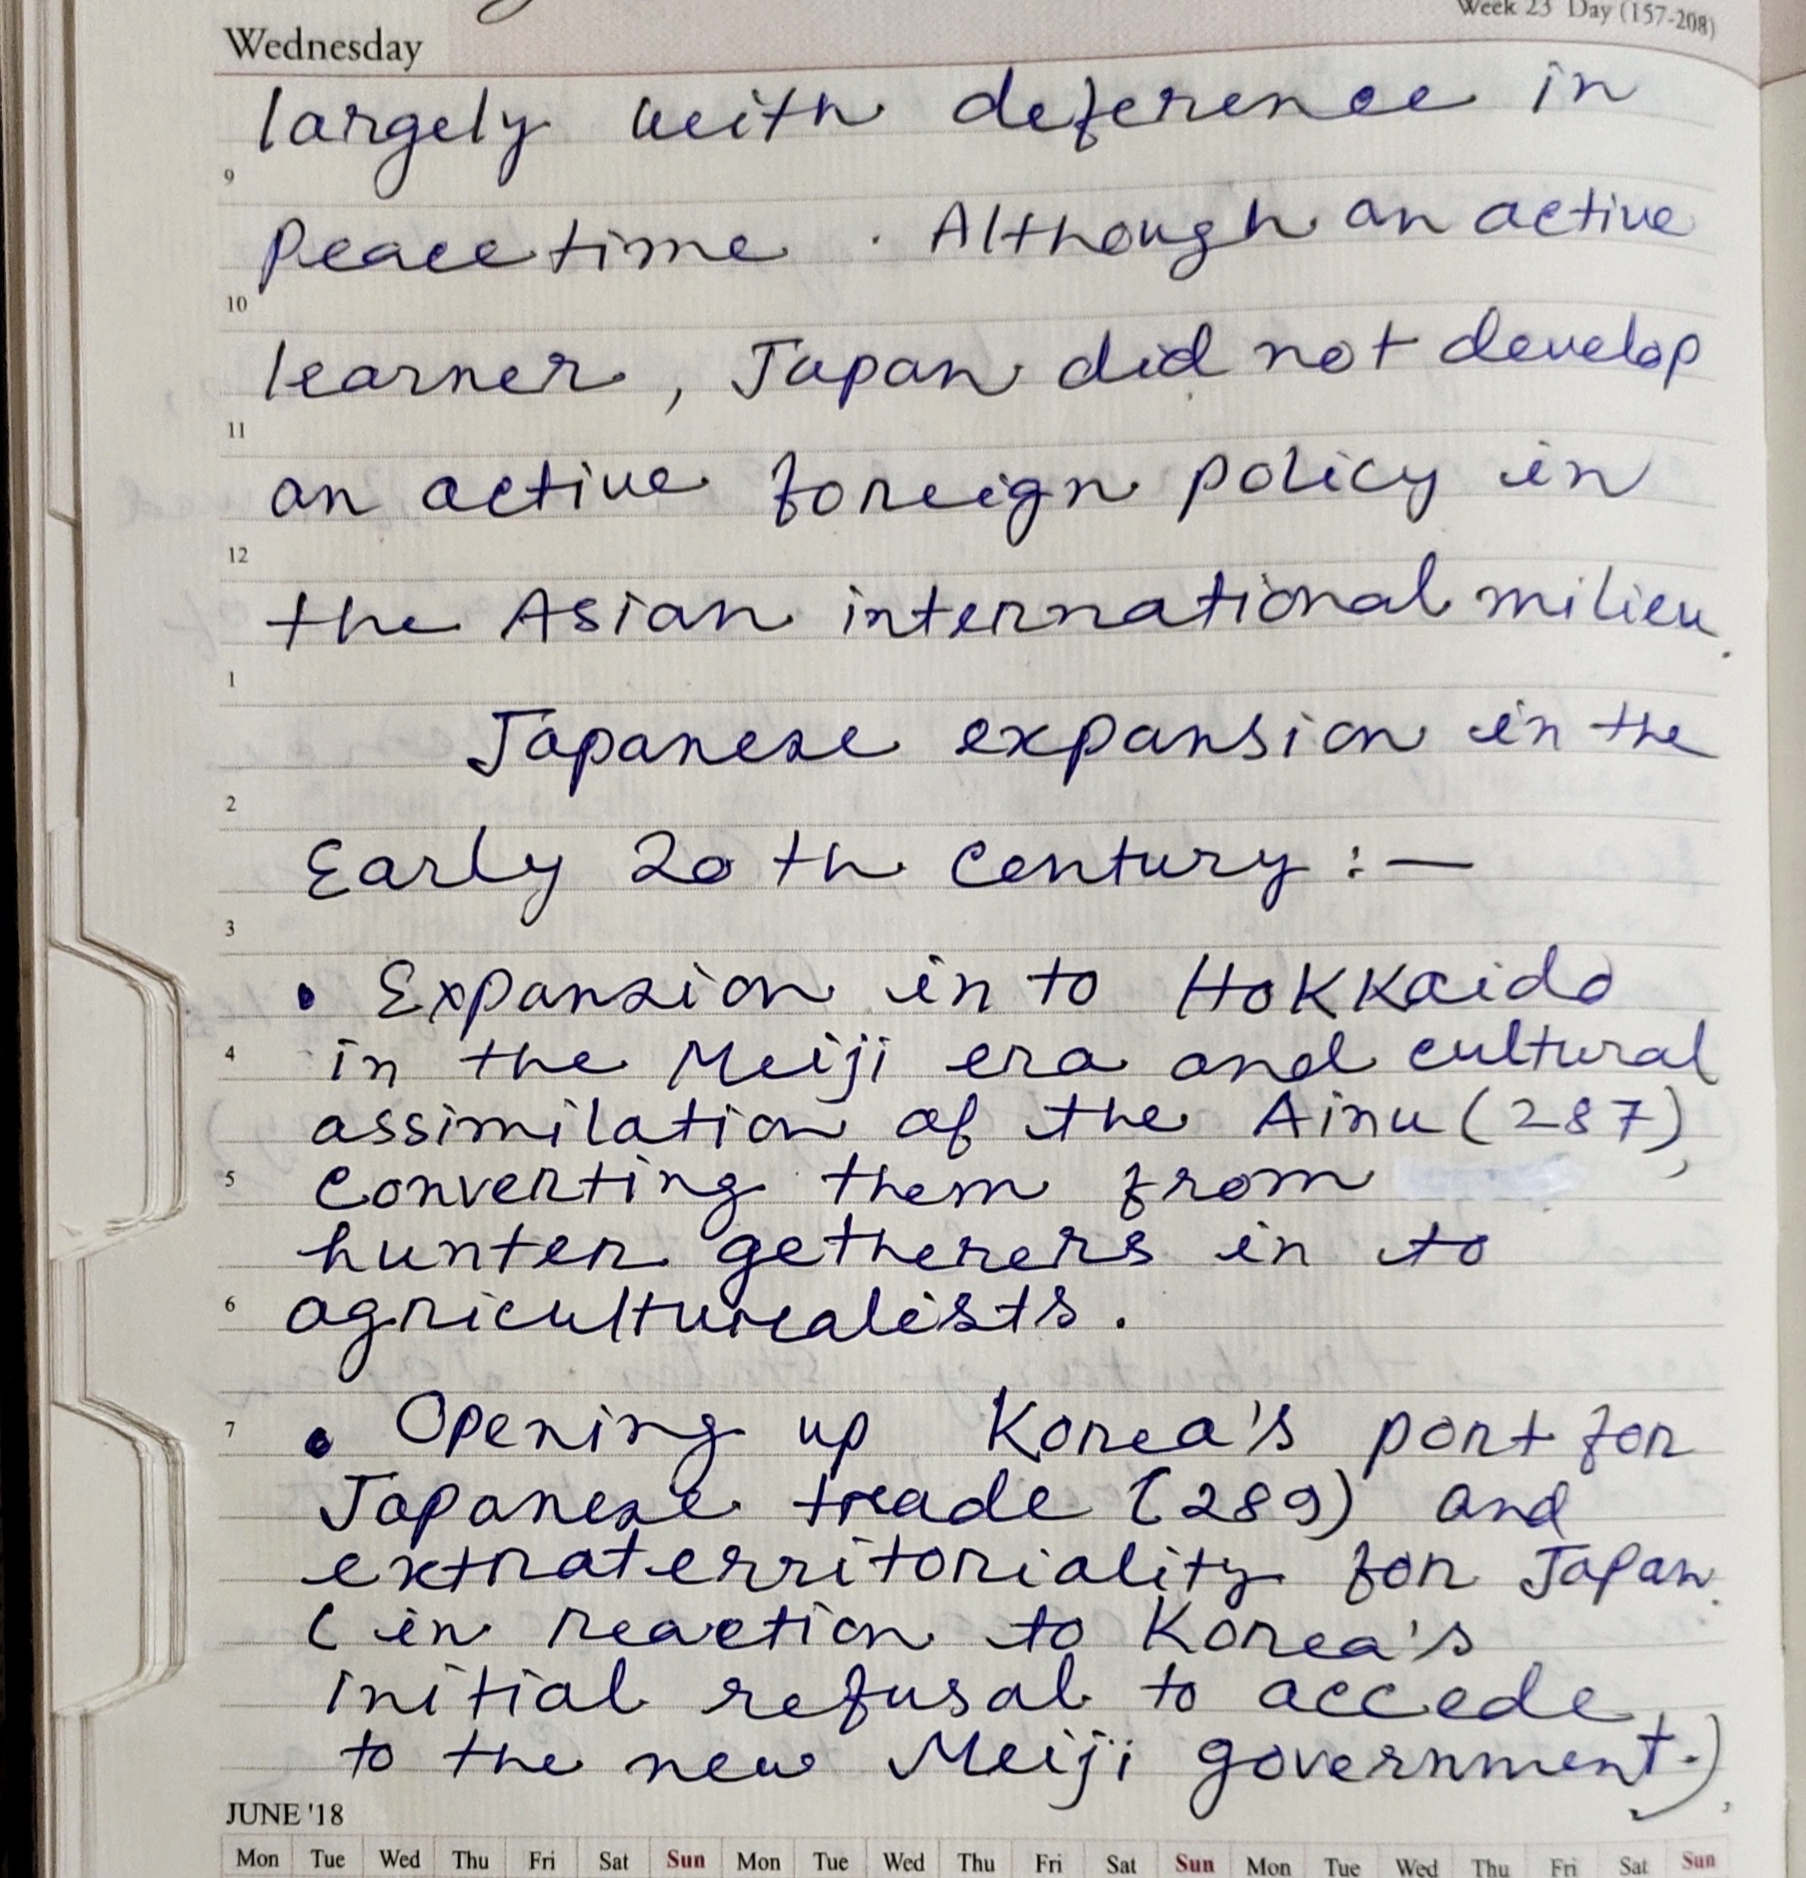 Week 23 Day (157-208)
Wednesday
largely with deference in
9
Peace time . Although an active
10
learner, Japan did not develop
11
an active foreign policy in
12
the Asian international milieu.
1
Japanese expansion in the
2
Early 20 th century :—
3
• Expansion in to Hokkaido
4 in the Meiji era and cultural
assimilation of the Ainu (287),
5 converting them from
hunter getherers in to
6 agriculturealists.
7 • Opening up Korea's port for
Japanese treade (289) and
extraterritoriality for Japan.
(in reaction to Korea's
initial refusal to accede
to the new Meiji government.),
JUNE '18
Mon Tue Wed Thu Fri Sat Sun Mon Tue Wed Thu Fri Sat Sun Mon Tue Wed Thu Fri Sat Sun